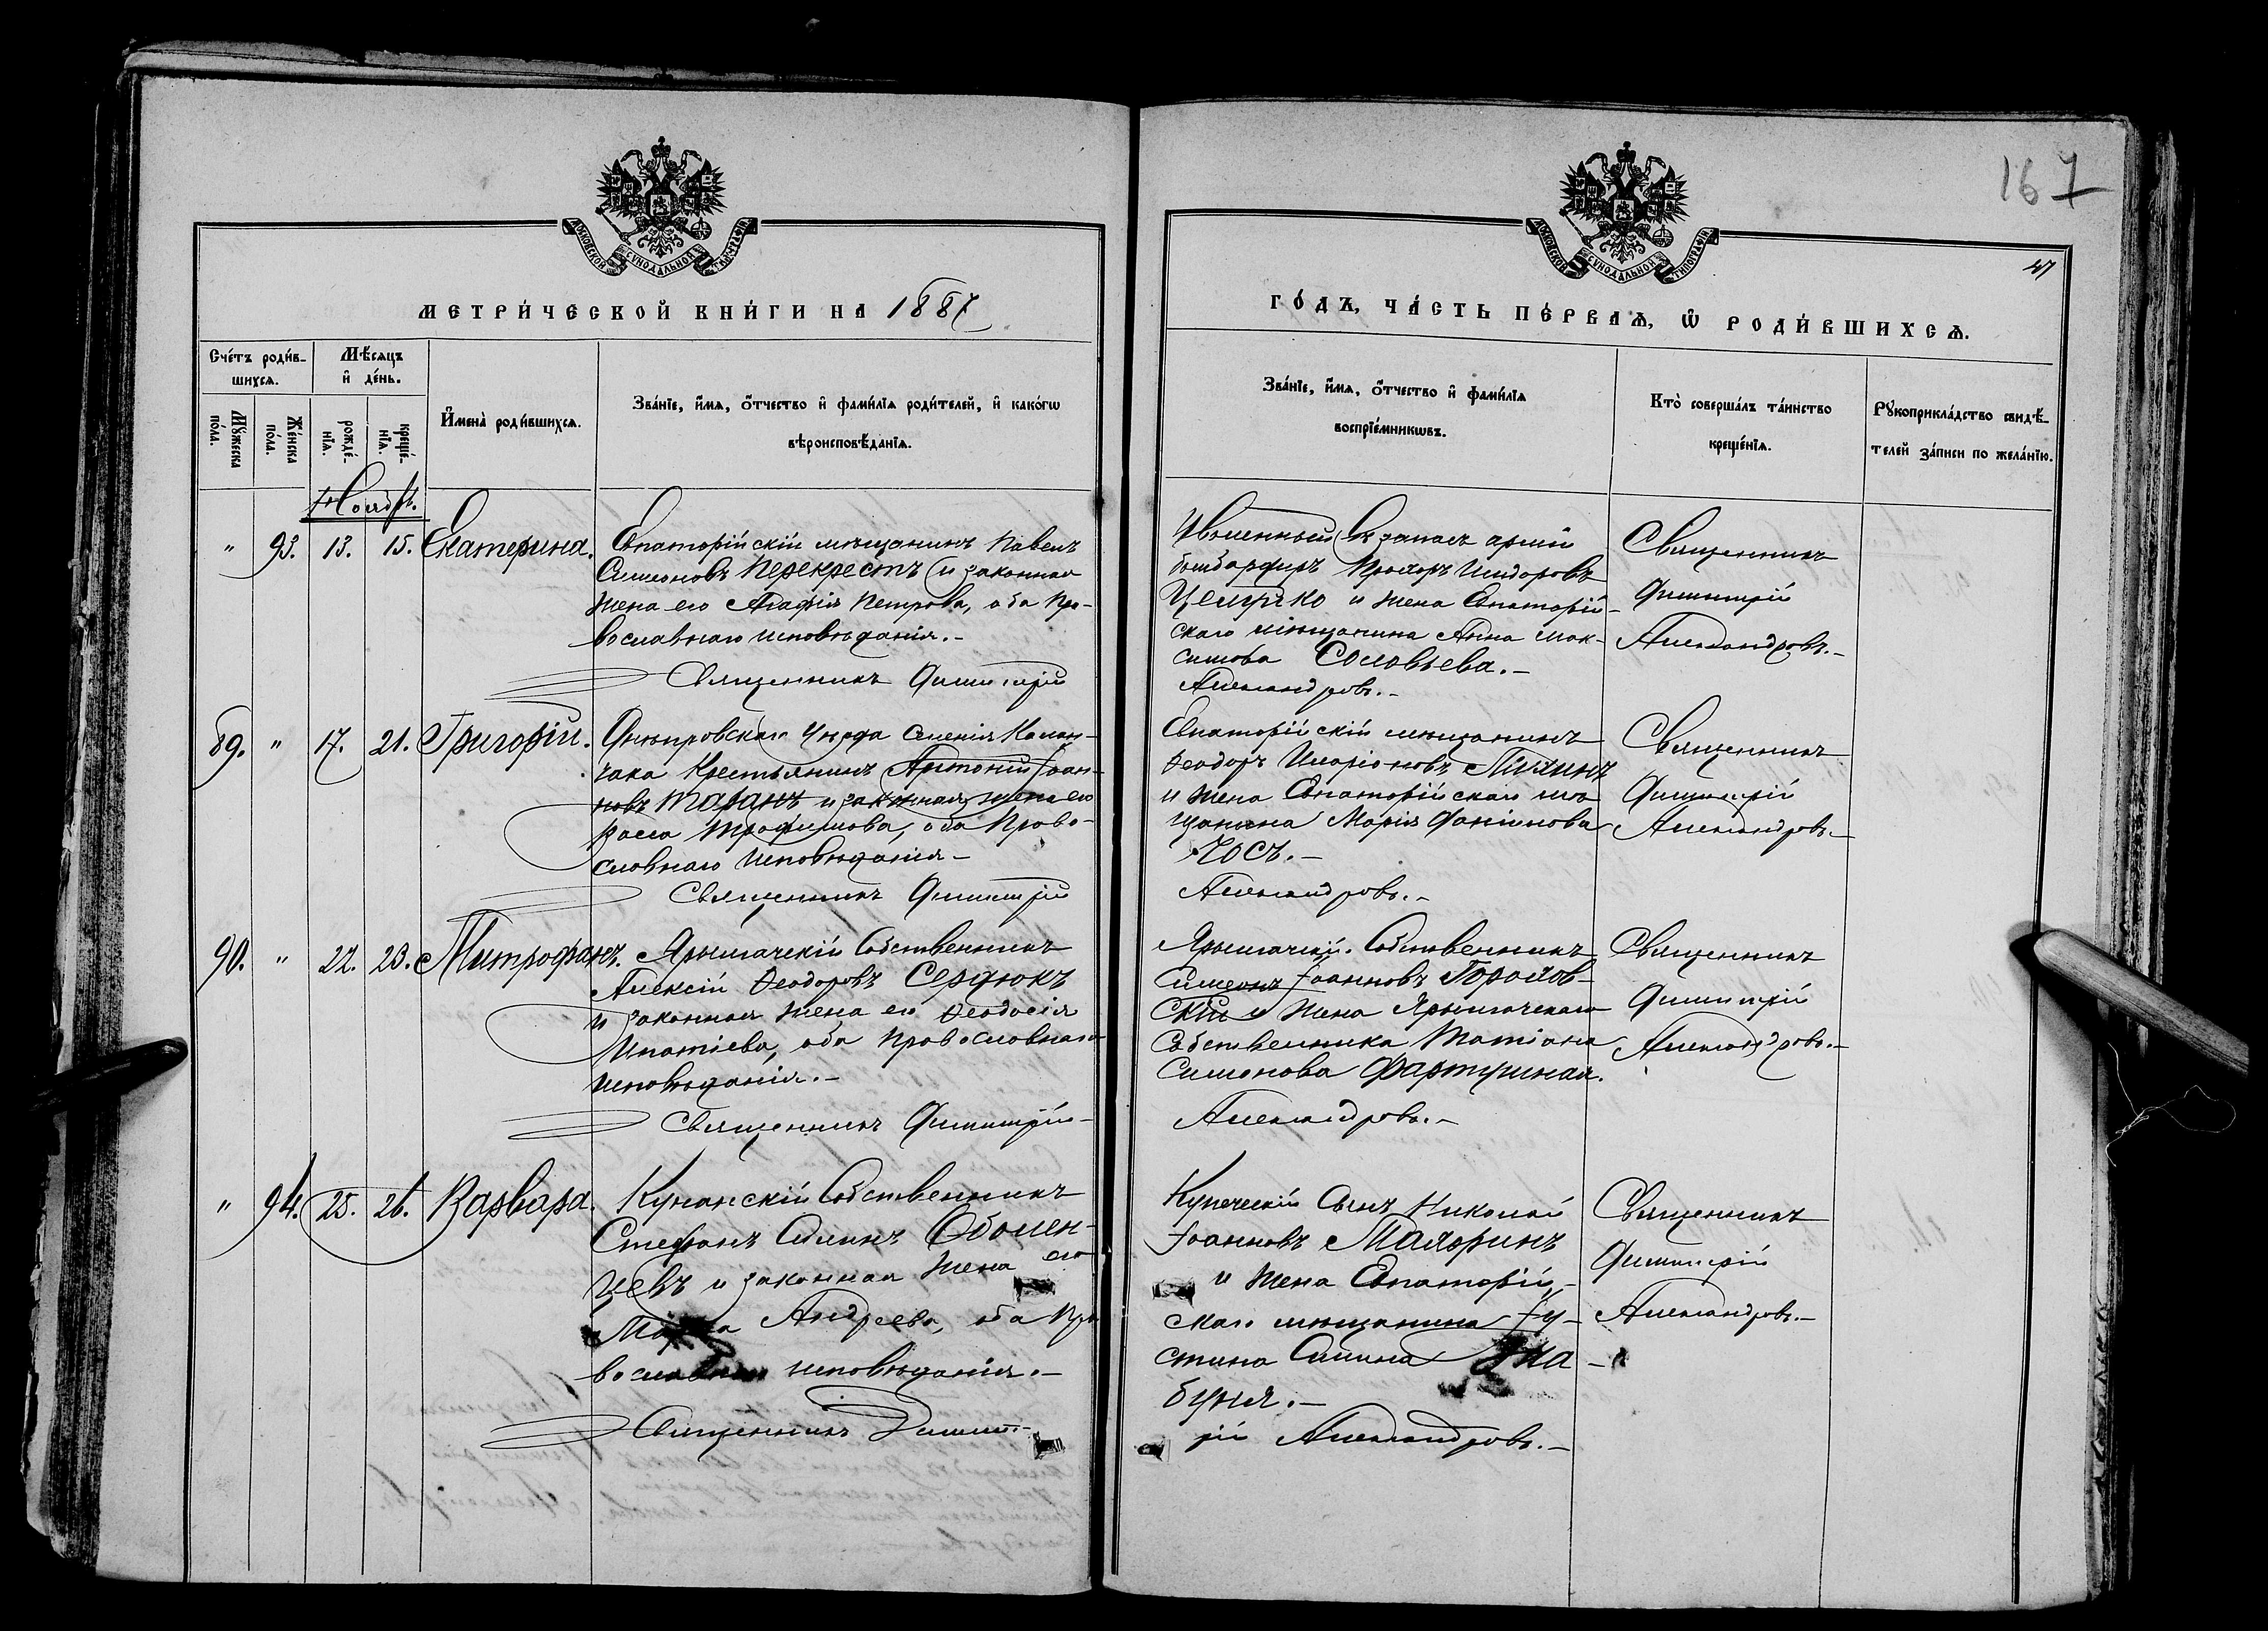 167
47
МОСКОВСКОЙ СѴНОДАЛЬНОЙ ТИПОГРАФІИ
МОСКОВСКОЙ СѴНОДАЛЬНОЙ ТИПОГРАФІИ
МЕТРИ́ЧЕСКОЙ КНИ́ГИ НА 1887
ГО́ДЪ, ЧА́СТЬ ПЕ́РВАѦ, Ѽ РОДИ́ВШИХСѦ.
Сче́тъ роди́в-
шихсѧ.
Мѣ́сяцъ
и҆ де́нь.
Мꙋ́жеска по́ла.
Же́нска по́ла.
рожде́-нїѧ.
креще́-нїѧ.
И҆мена̀ роди́вшихсѧ.
Зва́нїе, и҆́мѧ, ѻ҆́тчество и҆ фами́лїѧ роди́телей, и҆ како́гѡ
вѣроисповѣ́данїѧ.
Зва́нїе, и҆́мѧ, ѻ҆́тчество и҆ фами́лїѧ
воспрїе́мникѡвъ.
Кто̀ соверша́лъ та́инство
креще́нїѧ.
Рꙋкоприкла́дство свидѣ́-
телей за́писи по жела́нїю.
Ноябр.
" 93. 13. 15. Екатерина.
Евпаторійскій мѣщанинъ Павелъ
Симеоновъ Перекрестъ и законная
жена его Агафія Петрова, оба Пра-
вославнаго исповѣданія.-
Священникъ Димитрій
Уволенный въ запасъ арміи
бомбардиръ Прохоръ Исидоровъ
и жена Евпаторій-
скаго мѣщанина Анна Мак-
симова Соловьева.-
Александровъ.-
Священникъ
Димитрій
Александровъ.-
89. " 17. 21. Григорій.
Днѣпровскаго Уѣзда Селенія Калан-
чака Крестьянинъ Антоній Іоан-
новъ Таранъ и законная жена его
Васса Трофимова, оба Право-
славнаго исповѣданія-
Священникъ Димитрій
Евпаторійскій мѣщанинъ
Ѳеодоръ Иларіоновъ
и жена Евпаторійскаго мѣ-
щанина Марія
Чосъ.-
Александровъ.-
Священникъ
Димитрій
Александровъ.-
90. " 22. 23. Митрофанъ.
Ярылгачскій Собственникъ
Алексій Ѳеодоровъ Сердюкъ
и законная жена его Ѳеодосія
Ипатіева, оба Православнаго
исповѣданія.-
Священникъ Димитрій-
Ярылгачскій Собственникъ
Симеонъ Іоанновъ Горохов-
скій и жена Ярылгачскаго
Собственника Татіана
Симонова Фартушная.
Александровъ.-
Священникъ
Димитрій
Александровъ.-
" 94. 25. 26. Варвара.
Кунанскій Собственникъ
Стефанъ Оболен-
цевъ и законная жена его
Андреева, оба Пра-
вославнаго исповѣданія.-
Священникъ Димит-
Купеческій Сынъ Николай
Іоанновъ Махоринъ
и жена Евпаторій-
скаго мѣщанина Іу-
стина
буня.-
рій Александровъ.-
Священникъ
Димитрій
Александровъ.-